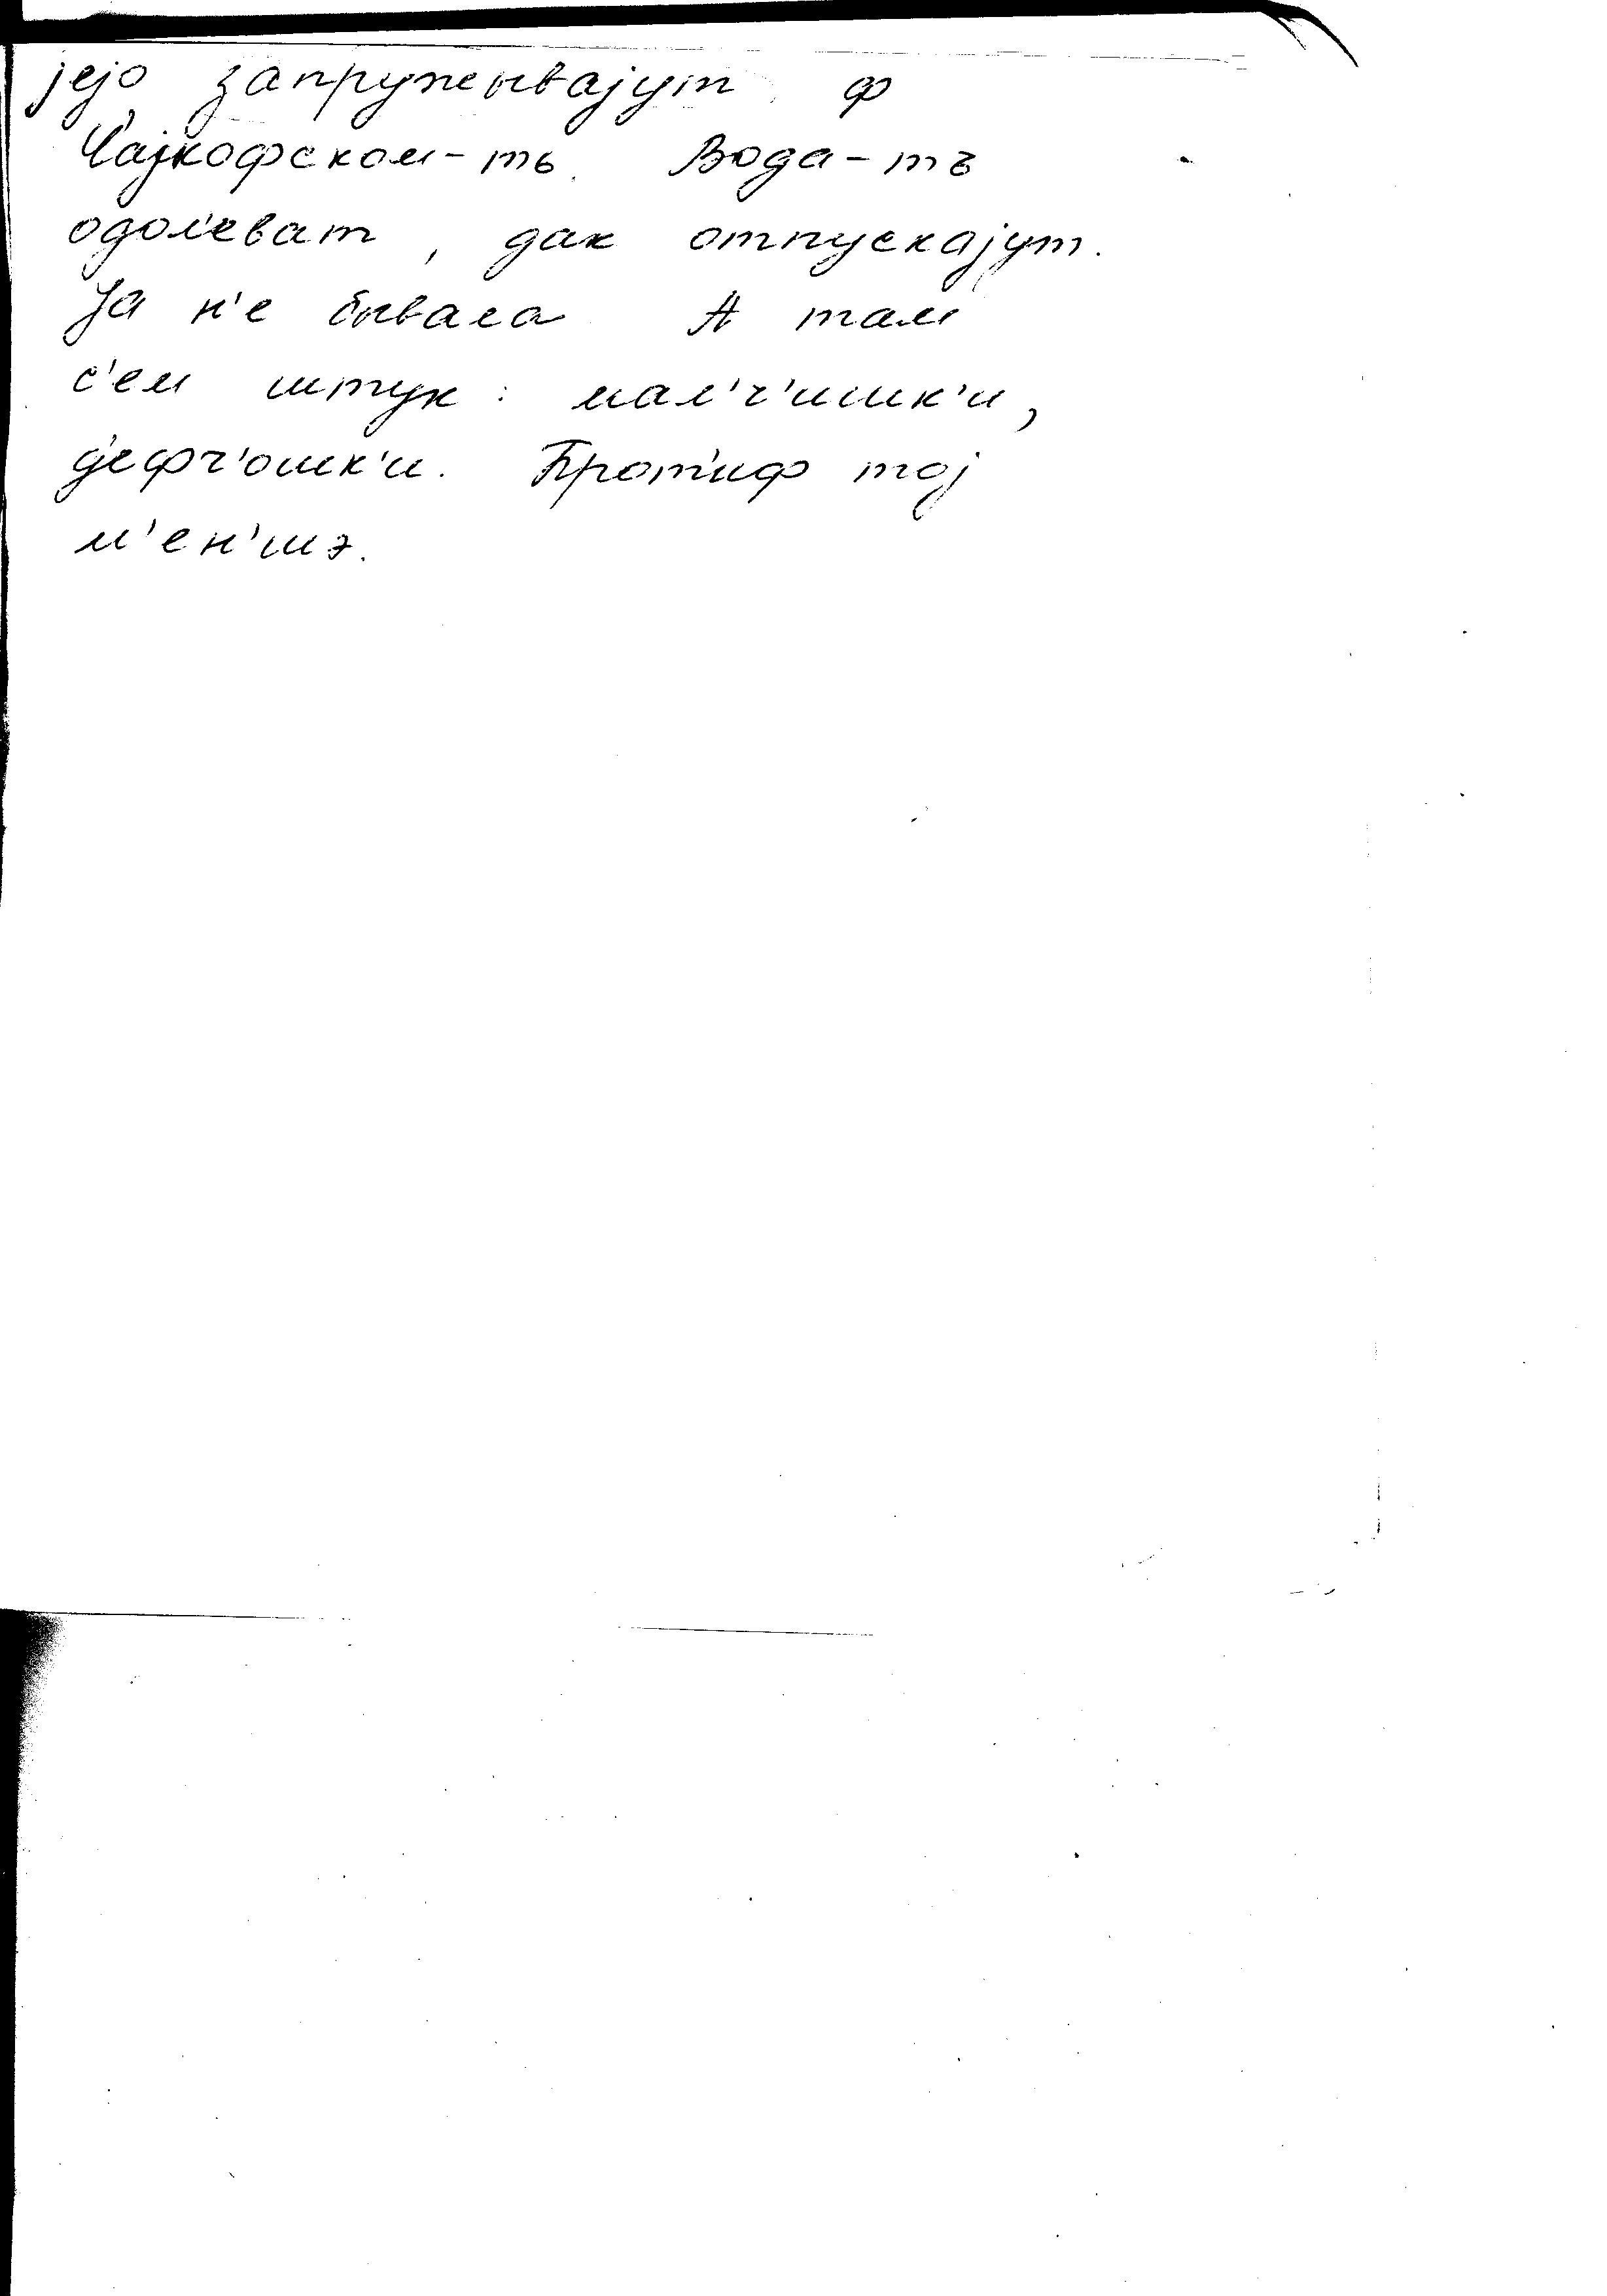 jejо запрупывајут ф
Чајкофском-ть. Вода-тъ
одол'еват, дак отпускајут.
Ја н'е бывала А там
с'ем штук: мал'ч'ишк'и,
д'ефч'ошк'и. Прот'иф тој
м'ен'шэ.